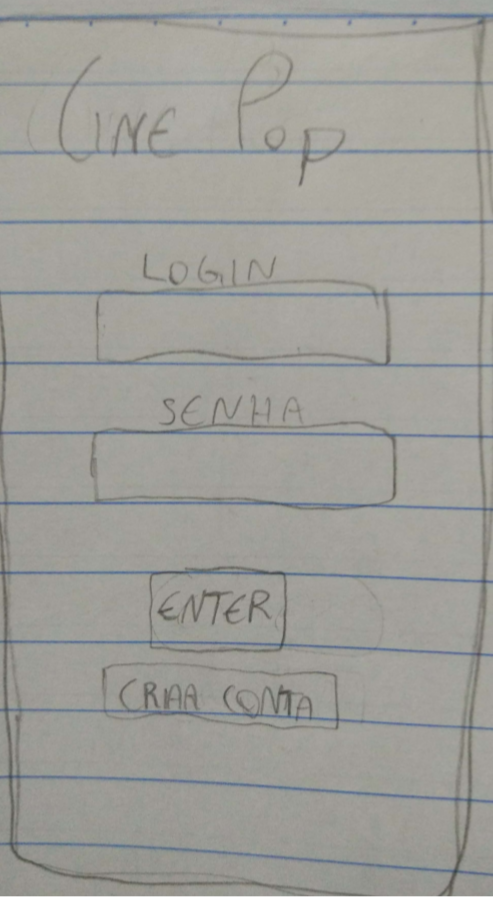 CINE POP
LOGIN
SENHA
ENTER
CRIAA CONTA